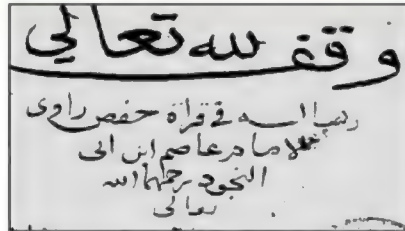 وقف لله تعالي
رسالـــه في قراة حفص راوى
الامام عاصم ابن ابى
النجود رحمهما الله
تعالى